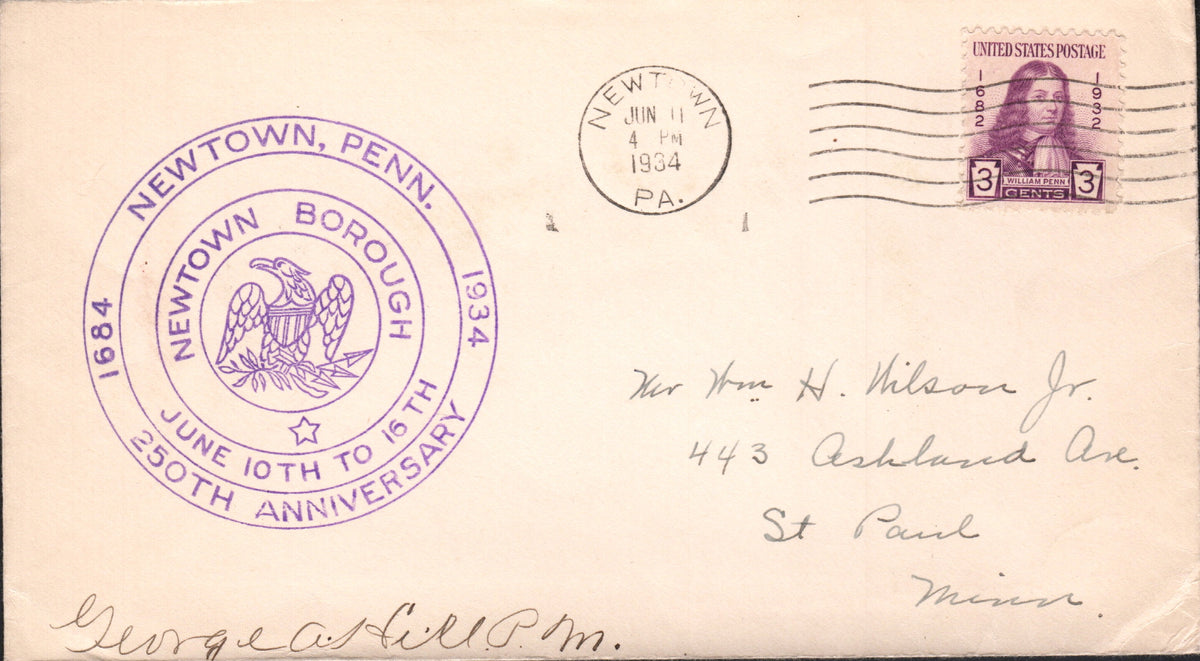 NEWTOWN, PENN.
1684 1934
NEWTOWN BOROUGH
JUNE 10TH TO 16TH
250TH ANNIVERSARY
NEWTOWN
JUN 11
4 PM
1934
PA.
UNITED STATES POSTAGE
1682 1932
3 WILLIAM PENN 3
CENTS
Mr Wm H. Wilson Jr.
443 Ashland Ave.
St Paul
Minn.
George A. Hill P.M.